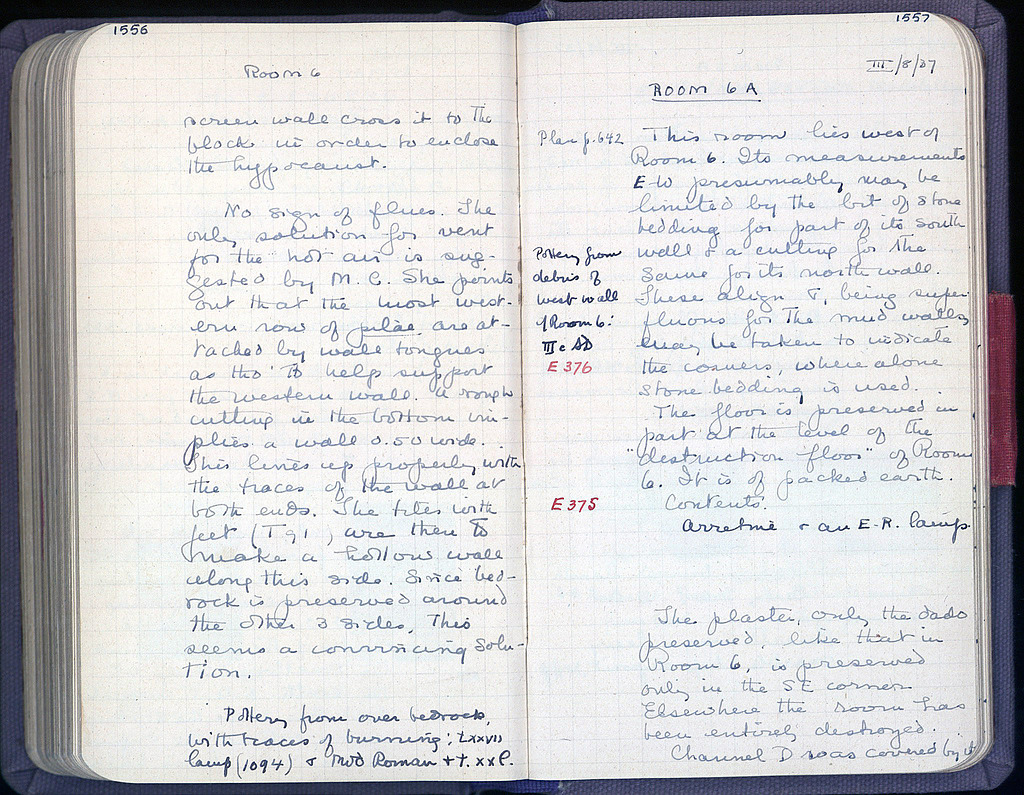 1556
Room 6
screen wall cross it to the
block in order to enclose
the hypocaust.
No sign of flues. The
only solution for vent
for the hot air is sug-
gested by M. C. She points
out that the most west-
ern row of pilae are at-
tached by wall tongues
as tho' to help support
the western wall. A rough
cutting in the bottom im-
plies a wall 0.50 wide.
This lines up properly with
the traces of the wall at
both ends. The tiles with
feet (T91) are then to
make a hollow wall
along this side. Since bed-
rock is preserved around
the other 3 sides, this
seems a convincing solu-
tion.
Pottery from over bedrock,
with traces of burning: t.xxvii
lamp (1094) & mod Roman + t. xx l.
1557
III/8/37
ROOM 6 A
Plan p. 642
This room lies west of
Room 6. Its measurements
E-W presumably may be
limited by the bit of stone
bedding for part of its south
wall & a cutting for the
same for its north wall.
These align &, being super-
fluous for the mud walls,
may be taken to indicate
the corners, where alone
stone bedding is used.
Pottery from
debris of
west wall
of Room 6:
III c AD
E 376
The floor is preserved in
part at the level of the
"destruction floor" of Room
6. It is of packed earth.
E 375
Contents.
Arretine & an E-R. lamp.
The plaster, only the dado
preserved, like that in
Room 6, is preserved
only in the SE corner.
Elsewhere the room has
been entirely destroyed.
Channel D was covered by it